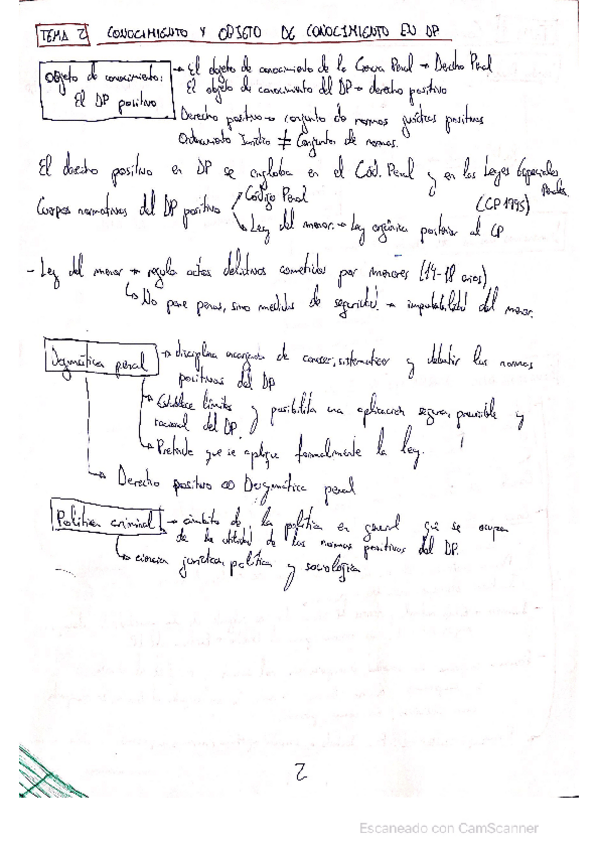 TEMA 2 CONOCIMIENTO Y OBJETO DE CONOCIMIENTO EN DP
Objeto de conocimiento:
El DP positivo
→ El objeto de conocimiento de la Ciencia Penal → Derecho Penal
El objeto de conocimiento del DP → derecho positivo
Derecho positivo → conjunto de normas jurídicas positivas
Ordenamiento Jurídico ≠ Conjunto de normas.
El derecho positivo en DP se engloba en el Cód. Penal y en las Leyes Especiales
Penales.
Cuerpos normativos del DP positivo
Código Penal
(CP 1995)
Ley del menor → Ley orgánica posterior al CP
- Ley del menor → regula actos delictivos cometidos por menores (14-18 años)
↳ No pone penas, sino medidas de seguridad → imputabilidad del menor.
Dogmática penal → disciplina encargada de conocer, sistematizar y debatir las normas
positivas del DP
↳ Establece límites y posibilita una aplicación segura, previsible y
racional del DP.
↳ Pretende que se aplique formalmente la ley.
↳ Derecho positivo ∞ Dogmática penal
Política criminal → ámbito de la política en general que se ocupa
de la utilidad de las normas positivas del DP.
↳ ciencia jurídica, política y sociológica
2
Escaneado con CamScanner